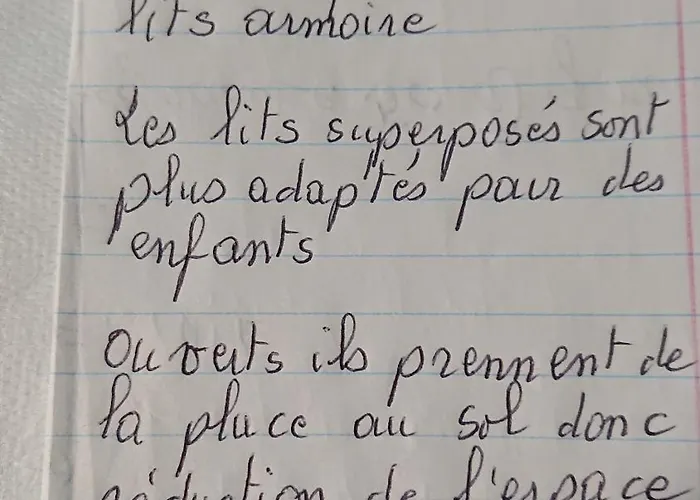 lits armoire
Les lits superposés sont
plus adaptés pour des
enfants
Ouverts ils prennent de
la place au sol donc
réduction de l'espace